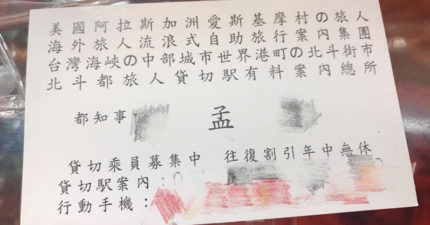 美國阿拉斯加洲愛斯基摩村の旅人
海外旅人流浪式自助旅行案內集團
台灣海峽の中部城市世界港町の北斗街市
北斗都旅人貸切駅有料案內總所
都知事 孟
貸切乘員募集中 往復割引年中無休
貸切駅案內：
行動手機：